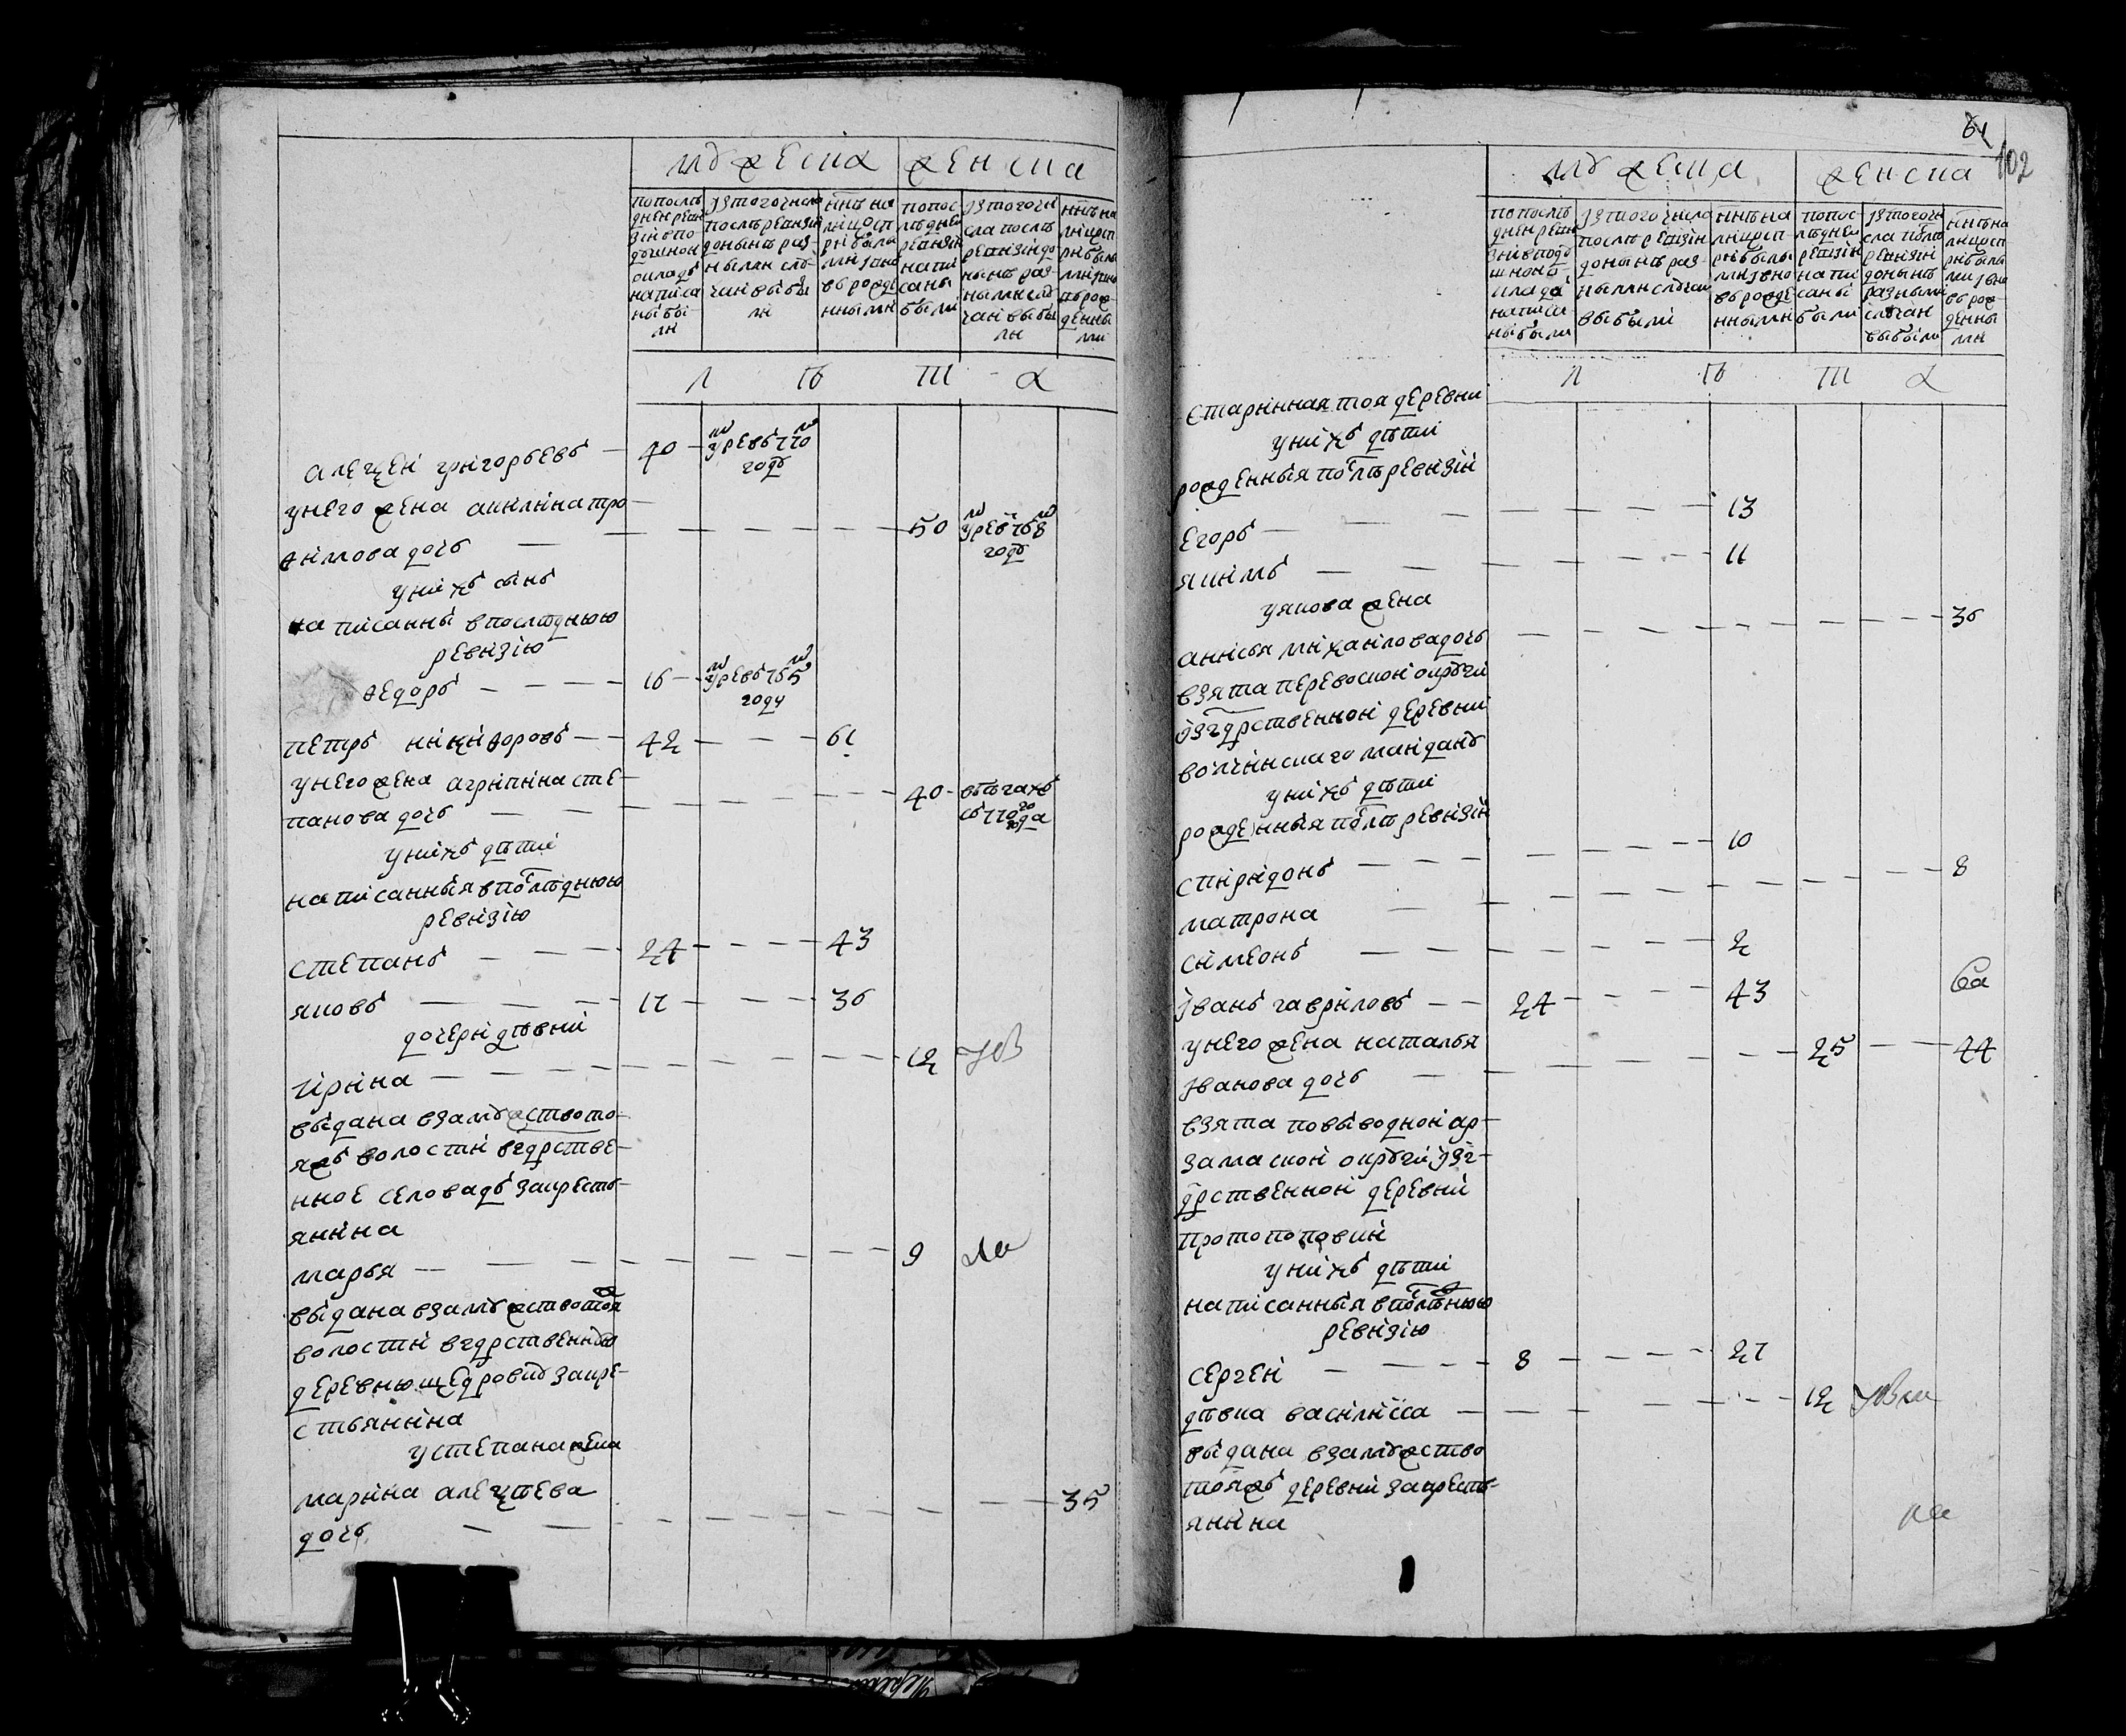 мужеска женска
попослѣ
дней реви
зіи впо
душной
окладъ
написа
ны бы
ли
Изтого числа
послѣ ревизіи
донынѣ раз
ными слу
чаи выбы
ли
нынѣ на
лицо съ
прибылы
ми и вно
въ рожде
нными
попос
лѣдней
ревизіи
напи
саны
были
Изтого чи
сла послѣ
ревизіи до
нынѣ раз
ными слу
чаи выбы
ли
нынѣ на
лицо съ
прибылы
ми и вно
въ рож
денны
ми
л ѣ т а
алеѯей григорьевъ — 40 — умре въ 770 м году
у него жена акилина тро
ѳимова дочь — 50 умре въ 768 м году
у нихъ сынъ
написанны в последнюю
ревизію
ѳедоръ — 16 — умре въ 765 м году
петръ никиѳоровъ — 42 — 61
у него жена агрипина сте
панова дочь — 40 — въ бегахъ
съ 770 го года
у нихъ дѣти
написанныя в последнюю
ревизію
степанъ — 24 — 43
яковъ — 17 — 36
дочери дѣвки
Ирина — 12
выдана взамужство то
яжъ волости вгдрстве
нное село вадъ закресть
янина
марья — 9
выдана взамужство тоя
волости вгдрственную
деревню щедровку закре
стьянина
у степана жена
марина алеѯѣева
дочь — 35
61
102
мужеска женска
попослѣ
дней реви
зіи вподу
шномъ
окладѣ
написа
ны были
Изтого числа
послѣ ревизіи
донынѣ раз
ными случаи
выбыли
нынѣ на
лицо съ
прибылы
ми и вно
въ рожде
нными
попос
лѣдней
ревизіи
напи
саны
были
Изтого чи
сла послѣ
ревизіи
донынѣ
разными
случаи
выбыли
нынѣ на
лицо съ
прибылы
ми и вно
въ рож
денны
ми
л ѣ т а
старинная тоя деревни
у нихъ дѣти
рожденныя послѣ ревизіи
Егоръ — 13
якимъ — 11
у якова жена
анисья михаилова дочь — 36
взята перевоской округи
изгдрственной деревни
волчинскаго майдану
у нихъ дѣти
рожденныя послѣ ревизіи
спиридонъ — 10
матрона — 8
симеонъ — 2
Иванъ гавриловъ — 24 — 43
у него жена наталья
Иванова дочь — 25 — 44
взята по выводной ар
замаской округи изг
дрственной деревни
протопоповки
у нихъ дѣти
написанныя в последнюю
ревизію
сергей — 8 — 27
дѣвка василисса — 12
выдана взамужство
тояжъ деревни закресть
янина